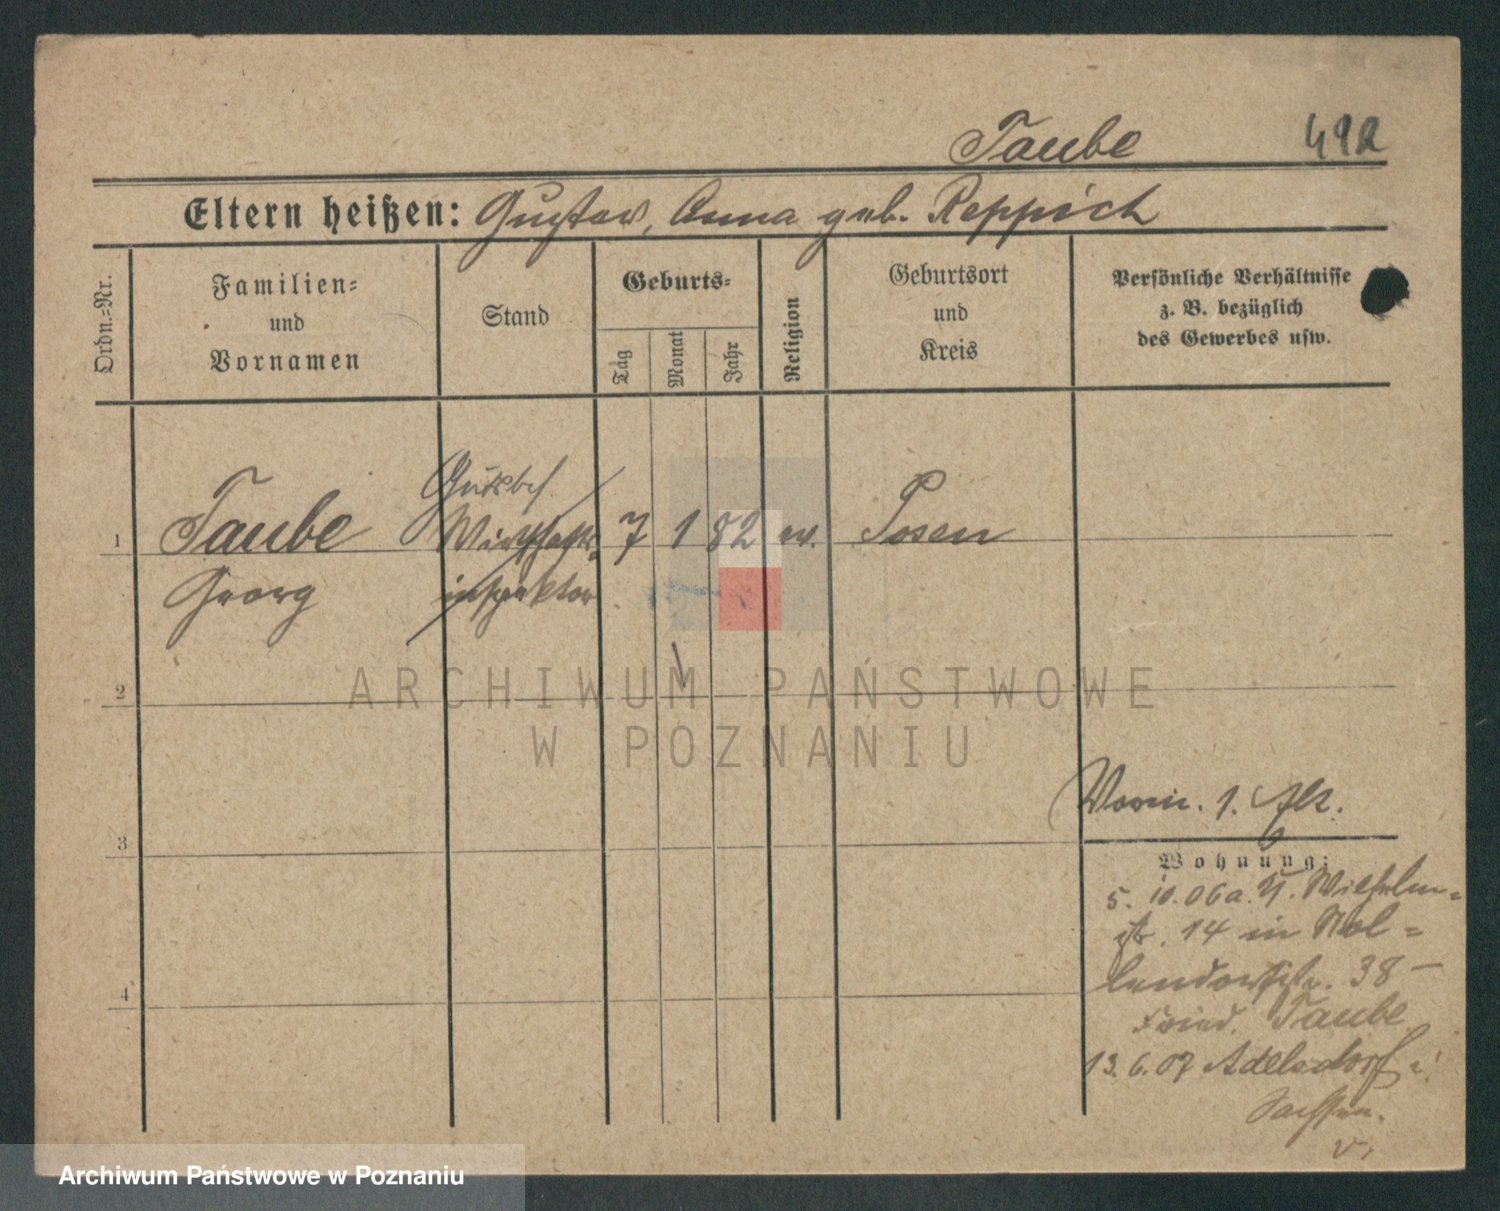 Taube 492
Eltern heißen: Gustav, Anna geb. Reppich
Ordn.-Nr.
Familien-
und
Vornamen
Stand
Geburts-
Tag
Monat
Jahr
Religion
Geburtsort
und
Kreis
Persönliche Verhältnisse
z. B. bezüglich
des Gewerbes usw.
Gutsbes.
1 Taube Wirtschafts- 7 1 82 ev. Posen
Georg inspektor
2
ARCHIWUM PAŃSTWOWE
W POZNANIU
3
1.
Wohnung:
5. 10. 06 a. Wilhelm-
str. 14 in Nol-
lendorfstr. 38 –
Fried. Taube
13. 6. 07 Adelsdorf
Sachsen.
v.
4
Archiwum Państwowe w Poznaniu